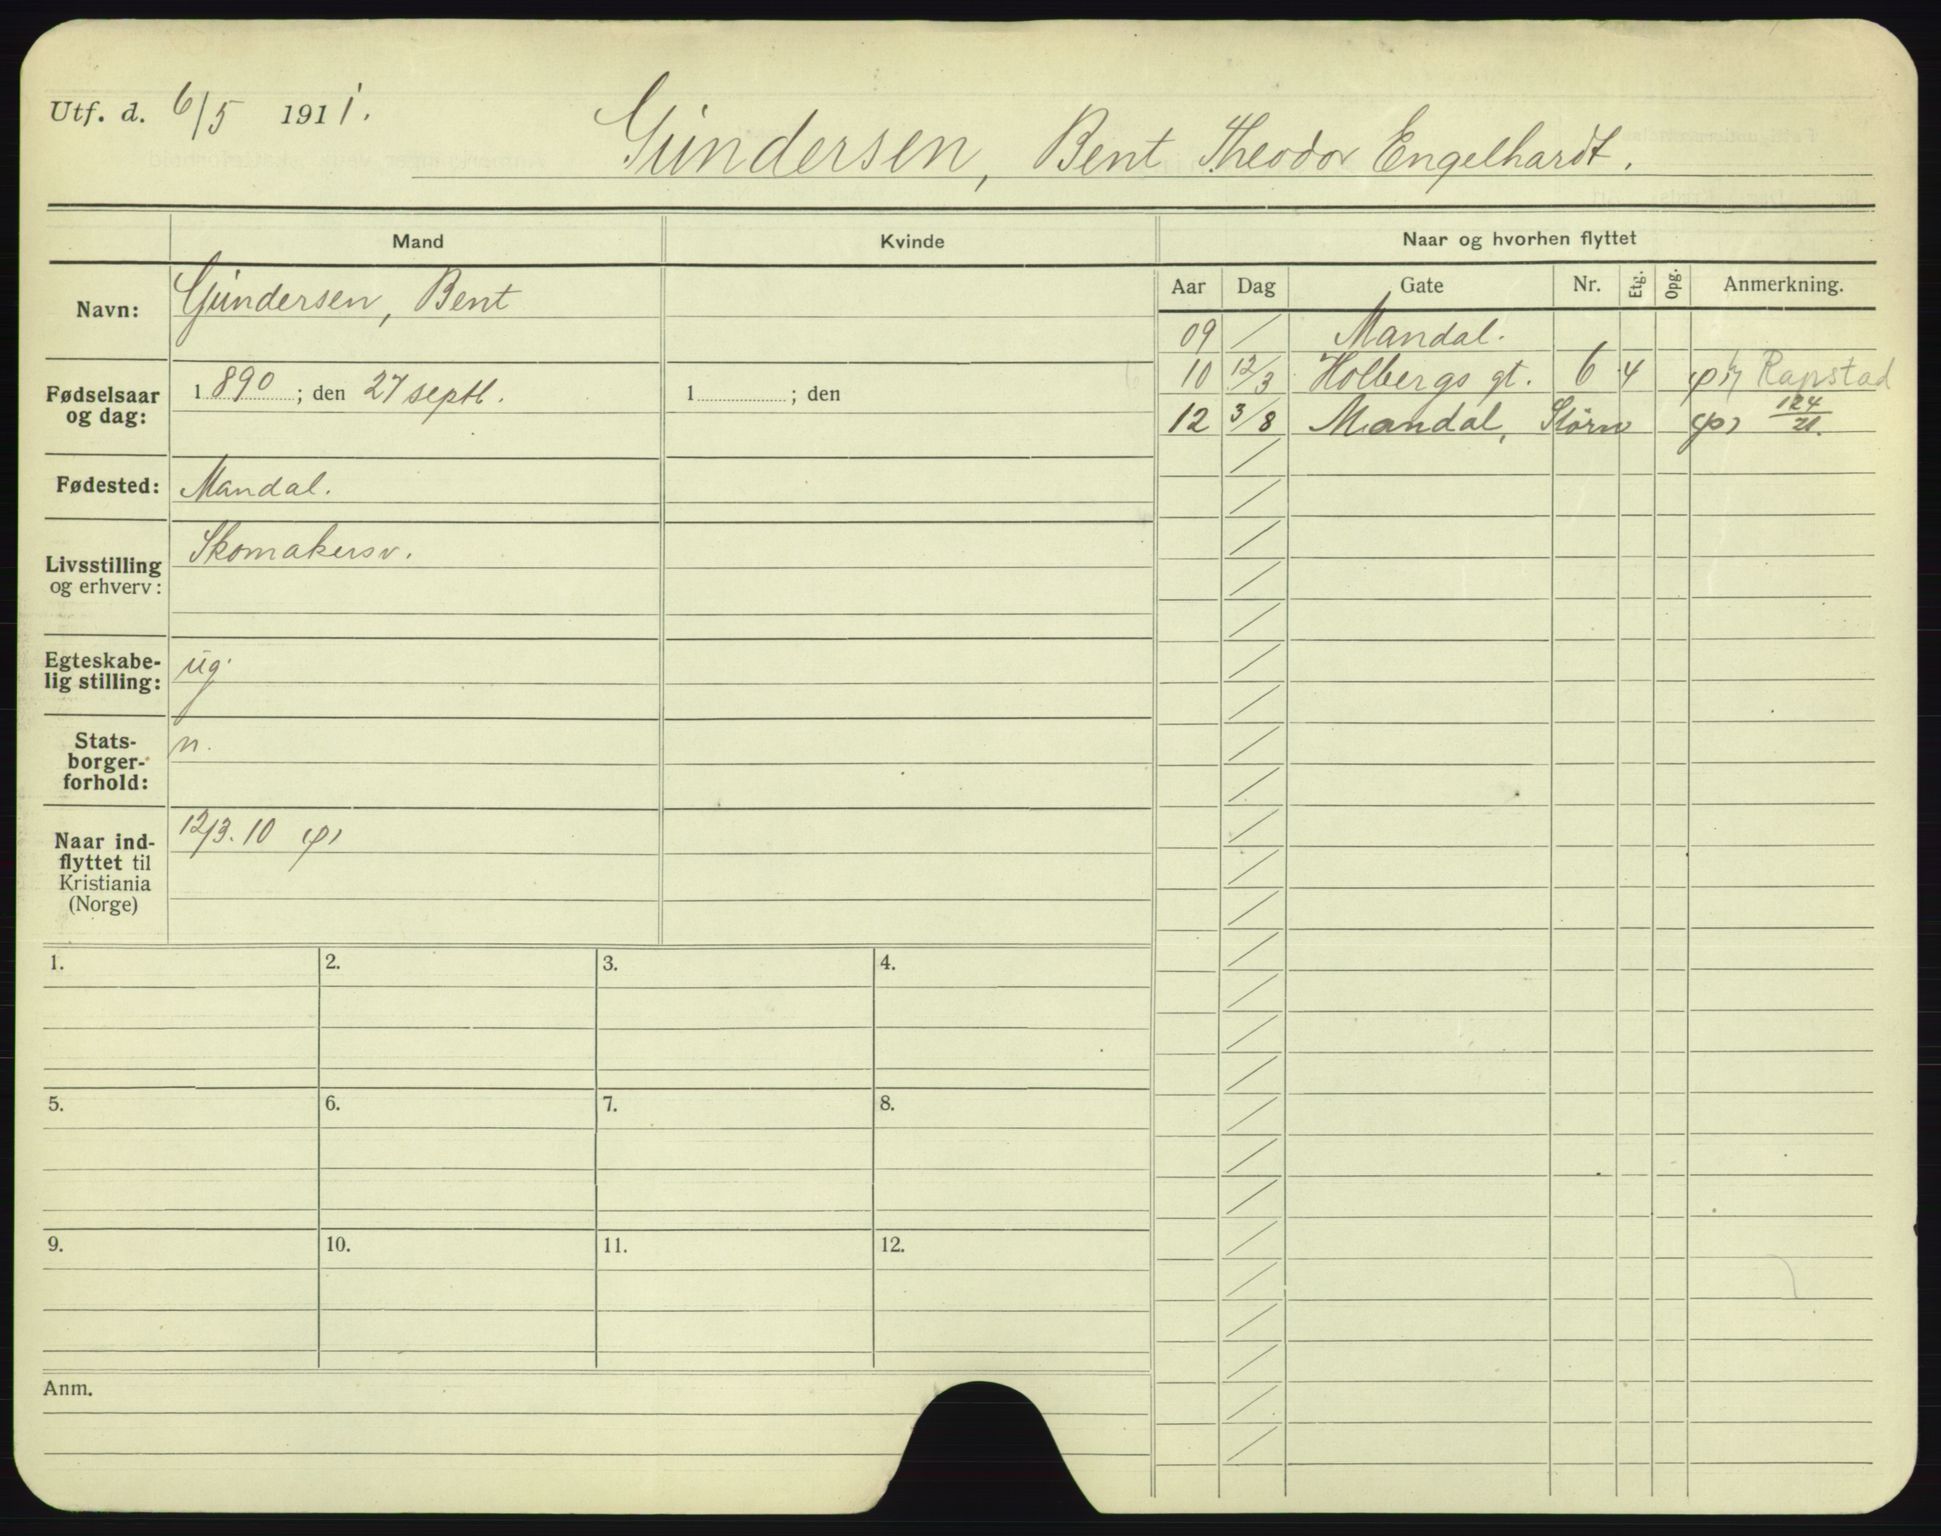 Utf. d. 6/5 1911.
Gundersen, Bent Theodor Engelhardt.
Mand
Kvinde
Naar og hvorhen flyttet
Navn: Gundersen, Bent
Fødselsaar og dag: 1890; den 27 septb.
1 ; den
Fødested: Mandal.
Livsstilling og erhverv: Skomakersv.
Egteskabe-
lig stilling: ug.
Stats-
borger-
forhold: n.
Naar ind-
flyttet til
Kristiania
(Norge) 12/3. 10
Aar Dag Gate Nr. Etg. Opg. Anmerkning.
09 / Mandal.
10 12/3 Holbergs gt. 6 4 Rapstad
12 3/8 Mandal, 124/21.
1. 2. 3. 4.
5. 6. 7. 8.
9. 10. 11. 12.
Anm.